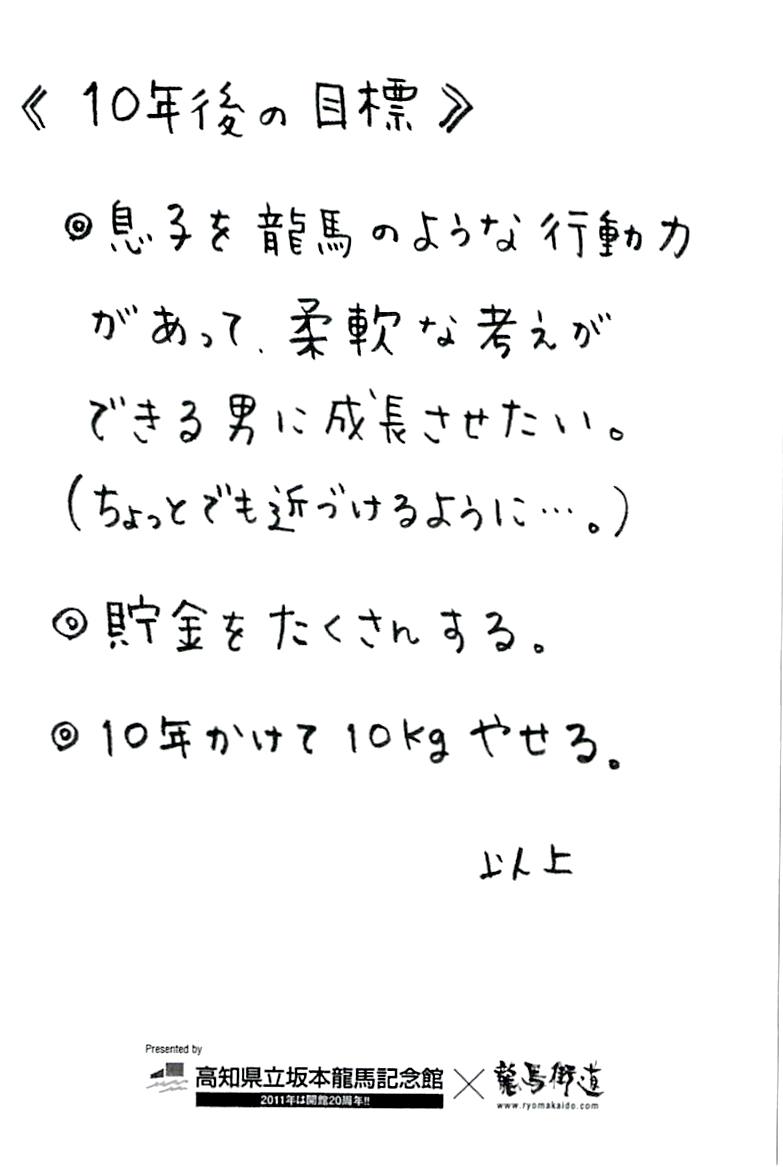 《 10年後の目標 》
◎息子を龍馬のような行動力
があって、柔軟な考えが
できる男に成長させたい。
(ちょっとでも近づけるように…。)
◎貯金をたくさんする。
◎10年かけて10kgやせる。
以上
Presented by
高知県立坂本龍馬記念館×龍馬街道
2011年は開館20周年!!
www.ryomakaido.com